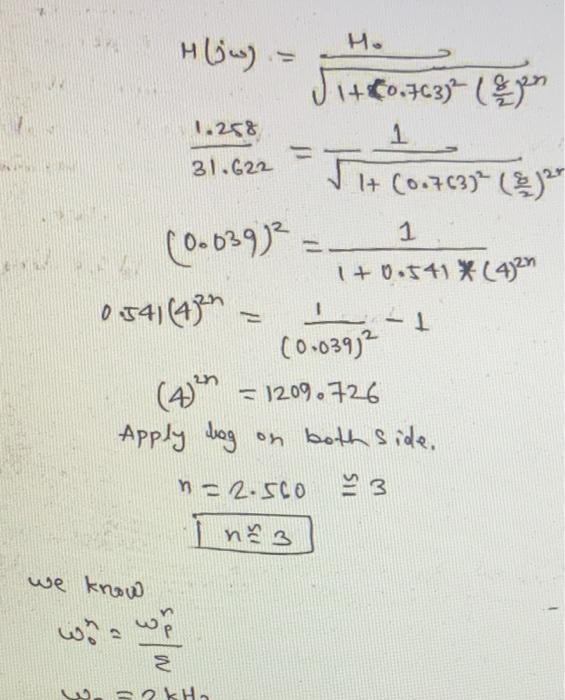 H(jω) = H₀ / √(1+(0.763)² (8/2)²ⁿ)
1.258 / 31.622 = 1 / √(1+(0.763)² (8/2)²ⁿ)
(0.039)² = 1 / (1+0.541*(4)²ⁿ)
0.541(4)²ⁿ = 1 / (0.039)² - 1
(4)²ⁿ = 1209.726
Apply log on both side.
n = 2.560 ≅ 3
n ≅ 3
we know
ω₀ⁿ = ωₚⁿ / ε